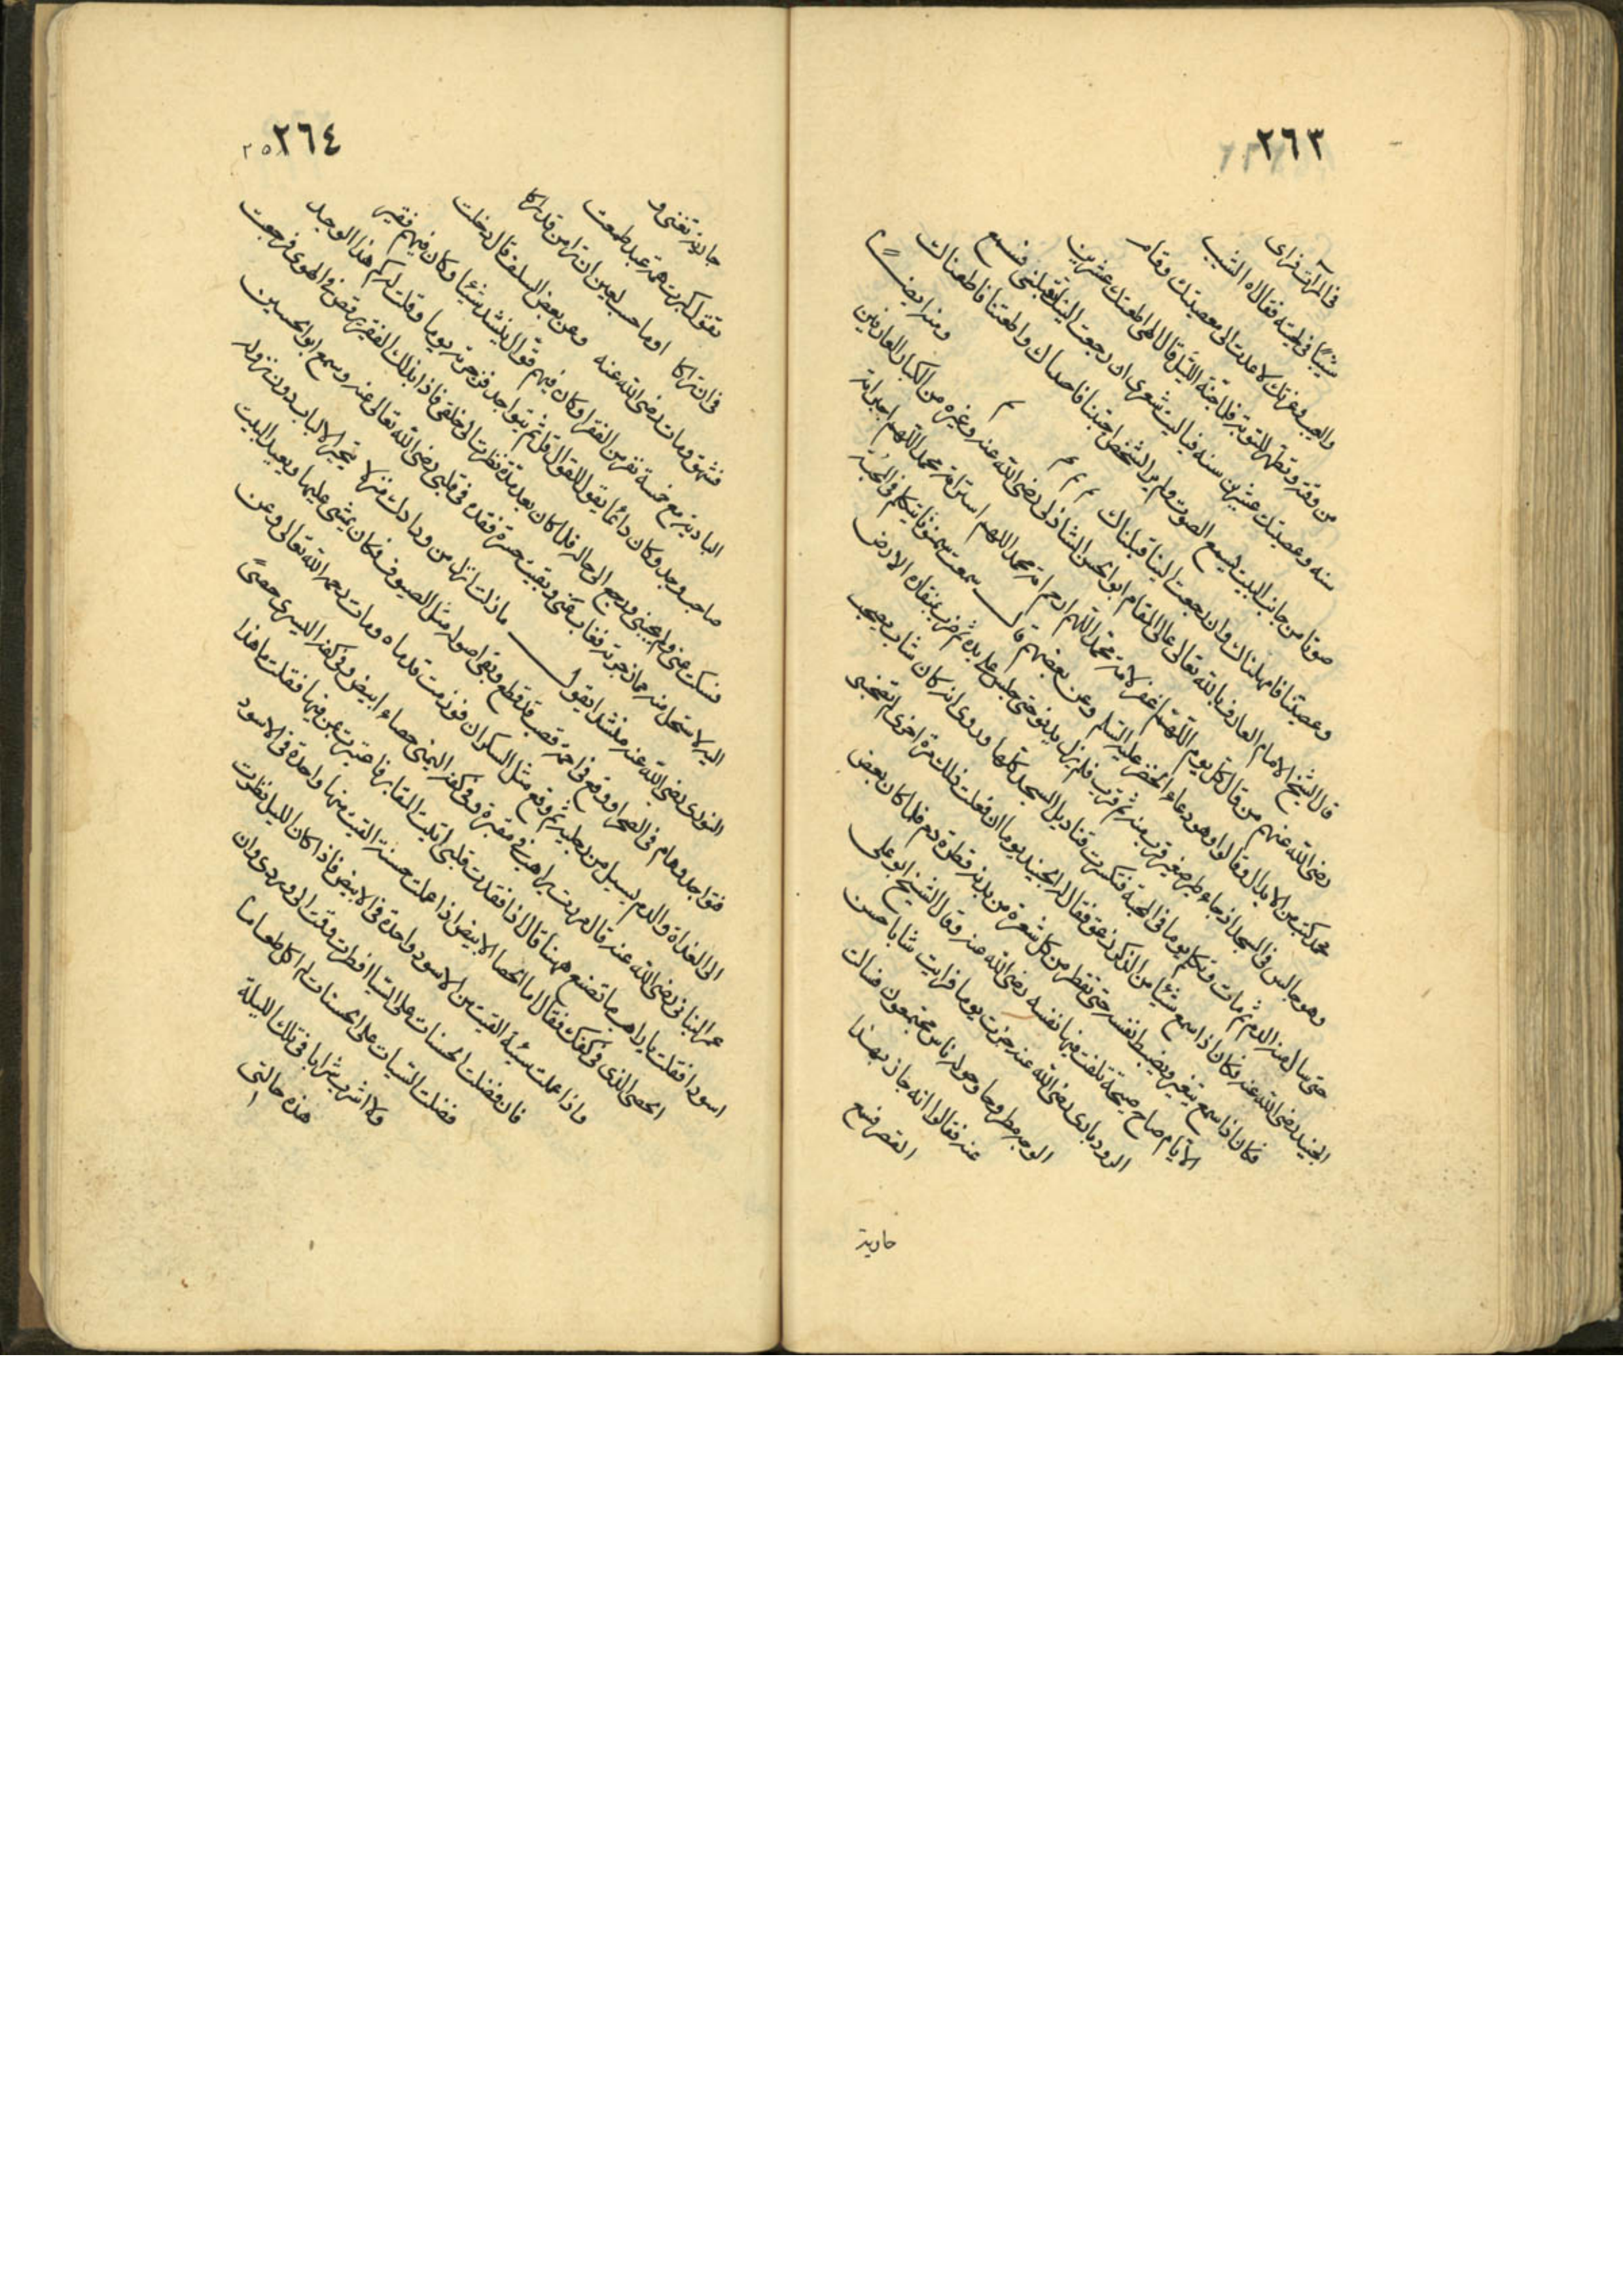 ٢٦٣
في المرآت فراى
شيبًا في لحيته فقال اه الشيب
والعيب وعزتك لا عدت الى معصيتك وقام
من وقته وتطهر للتوبة فلما جنه الليل قال الهي اطعتك عشرين
سنه وعصيتك عشرين سنه فياليت شعري ان رجعت اليك تقبلني فسمع
صوتا من جانب البيت يسمع الصوت ولم ير الشخص احببتنا فاحببناك واطعتنا فاطعناك
وعصيتنا فامهلناك وان رجعت الينا قبلناك م م م م ومنه ايضًا
قال الشيخ الامام العارف بالله تعالى عالي المقام ابو الحسن الشاذلي رضي الله عنه وغيره من الكبار العارفين
رضي الله عنهم من قال كل يوم اللهم اغفر لامة محمد اللهم ارحم امة محمد اللهم استر امة محمد اللهم اجبر امة
محمد كتب من الابدال وقالوا وهو دعاء الخضر عليه السلام وعن بعضهم قال سمعت سمنونا يتكلم في المحبة
وهو جالس في المسجد اذ جاء طير صغير قرب منه ثم قرب فلم يزل يدنو حتى جلس على يده ثم ضرب بمنقاره الارض
حتى سال منه الدم ثم مات وتكلم يوما في المحبة فتكسرت قناديل المسجد كلها وروى انه كان شاب يصحب
الجنيد رضي الله عنه فكان اذا سمع شيئا من الذكر زعق فقال له الجنيد يوما ان فعلت ذلك مرة اخرى لم تصحبني
فكان اذا سمع يتغير ويضبط نفسه حتى تقطر من كل شعرة من بدنه قطرة دم فلما كان بعض
الايام صاح صيحة تلفت فيها نفسه رضي الله عنه وقال الشيخ ابو علي
الرودباري رضي الله عنه جزت يوما فرايت شابا حسن
الوجه مطروحا وحوله ناس مجتمعون فسالت
عنه فقالوا انه جاز بهذا
القصر فسمع
جارية
٢٦٤
جارية تغني و
تقول كبرت همة عبد طمعت
في ان تراكا اوما حسب لعين ان ترا من قد راكا
فشهق ومات رضي الله عنه وعن بعض السلف قال دخلت
البادية مع خمسة نفر من الفقرا وكان فيهم قوال ينشد شيئا وكان فيهم فقير
صاحب وجد وكان دائما يقول للقوال قل ثم يتواجد فزجرته يوما وقلت له كم هذا الوجد
فسكت عني ولم يجبني ورجع الى حاله فلما كان بعد مدة نظرت الى خلفي فاذا بذلك الفقير يرقص في الهوى فرجعت
اليه لاستحل منه مما زجرته فغاب عني وبقيت حسرة فقده في قلبي رضي الله تعالى عنه وسمع ابو الحسين
النوري رضي الله عنه منشدا يقول ما زلت انزل من ودادك منزلا تتحير الالباب دون نزوله
فتواجد وهام في الصحرا ووقع في اجمة قصب قد قطع وبقي اصوله مثل السيوف فكان يمشي عليها ويعيد البيت
الى الغداة والدم يسيل من رجليه ثم وقع مثل السكران فورمت قدماه ومات رحمه الله تعالى وعن
عمر البناني رضي الله عنه قال مررت براهب في مقبرة وفي كفه اليمنى حصاء ابيض وفي كفه اليسرى حصى
اسود فقلت يا راهب ما تصنع ههنا قال اذا فقدت قلبي اتيت المقابر فاعتبرت بمن فيها فقلت ما هذا
الحصى الذي في كفك فقال اما الحصا الابيض اذا عملت حسنة القيت منها واحدة في الاسود
واذا عملت سيئة القيت من الاسود واحدة في الابيض فاذا كان الليل نظرت
فان فضلت الحسنات على السيات افطرت وقمت الى وردي وان
فضلت السيات على الحسنات لم اكل طعاما
ولا اشرب شرابا في تلك الليلة
هذه حالتي